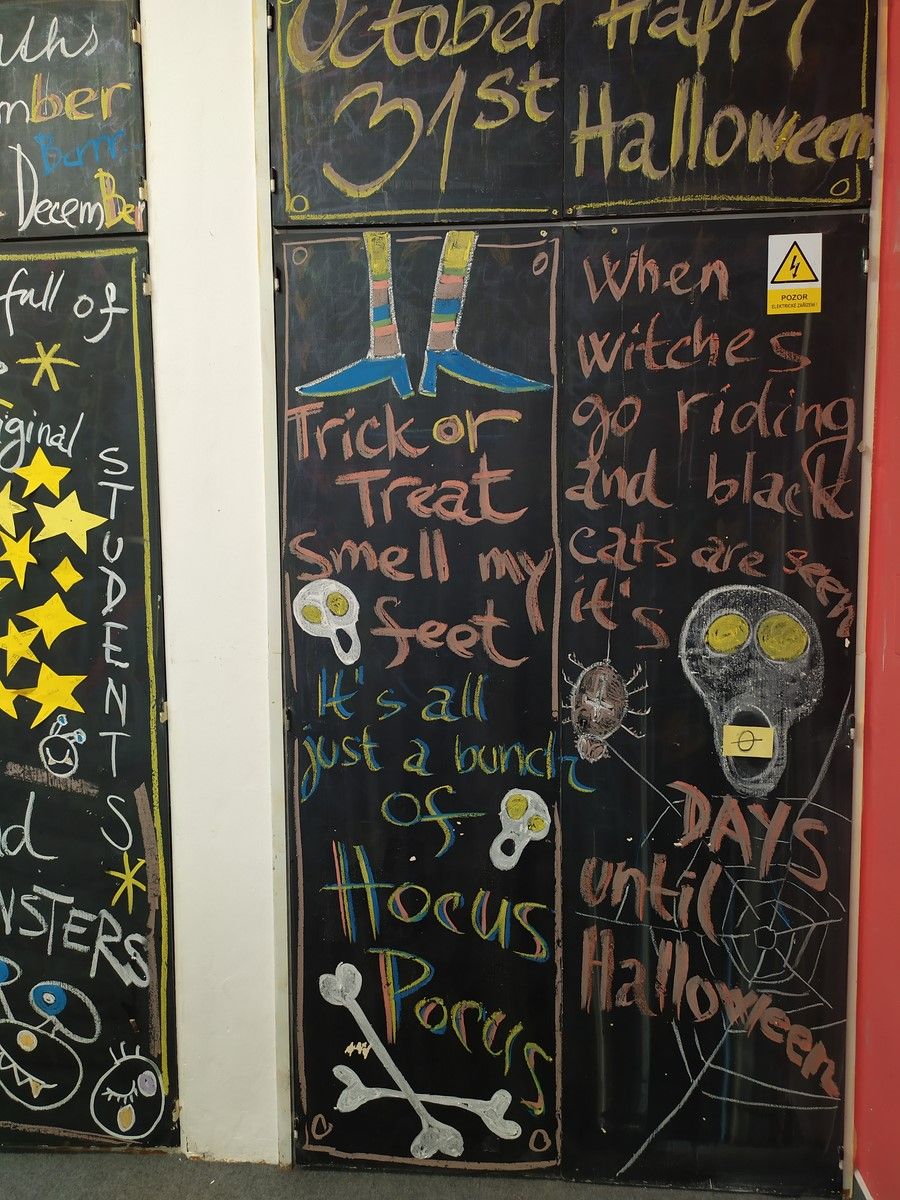 mber
Brrrr
December
fall of
STUDENTS
October
31st
Happy
Halloween
Trick or
Treat
Smell my
feet
It's all
just a bunch
of
Hocus
Pocus
When
witches
go riding
and black
cats are seen
it's
0
DAYS
until
Halloween
POZOR
ELEKTRICKÉ ZAŘÍZENÍ!